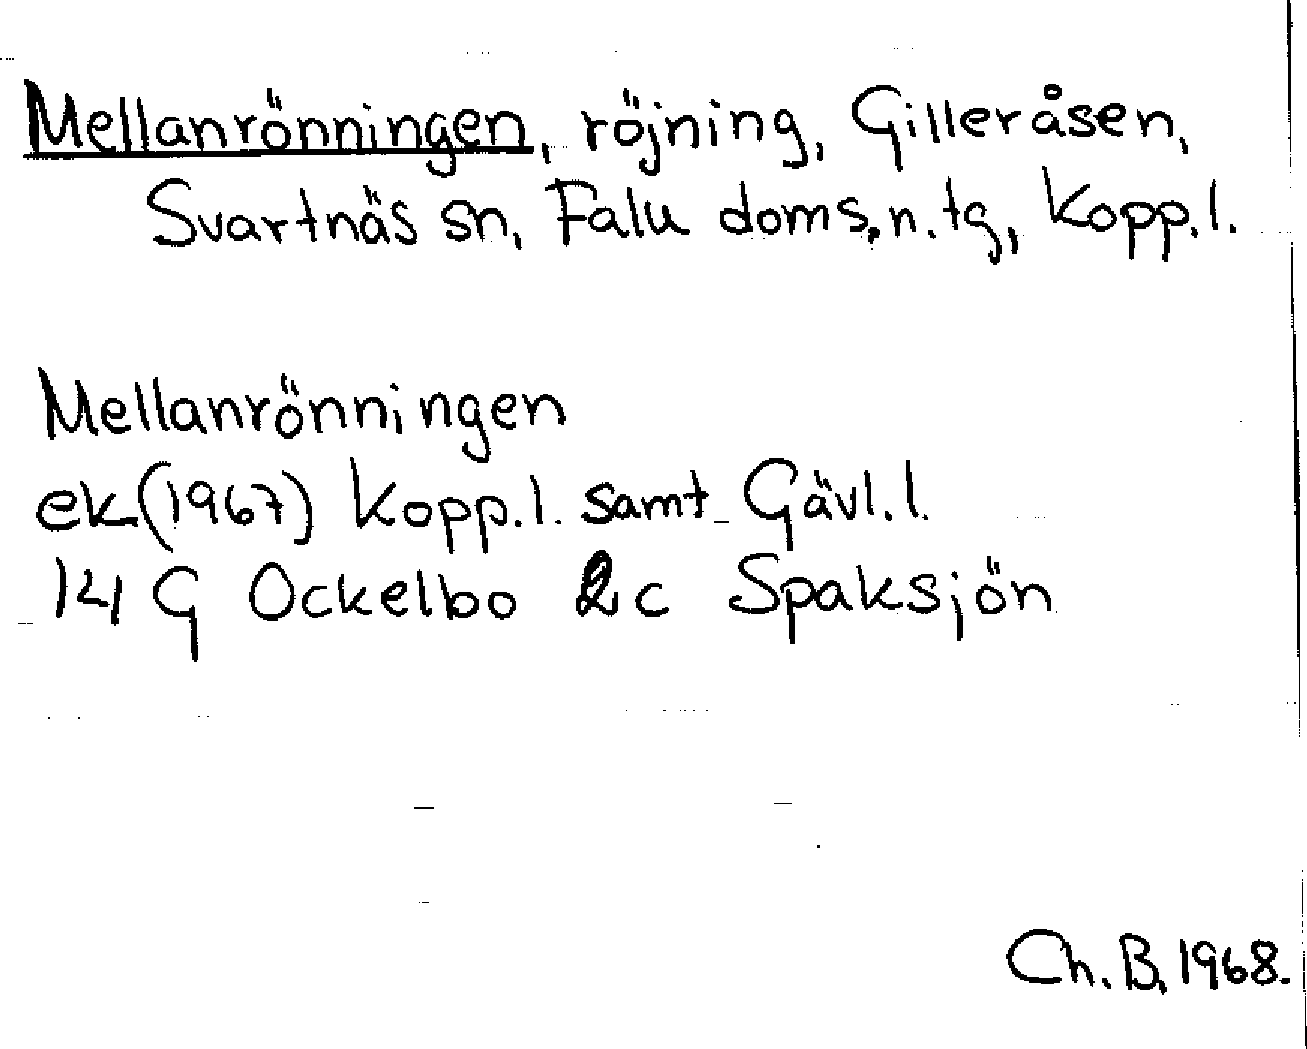 Mellanrönningen, röjning, Gilleråsen,
Svartnäs sn, Falu doms.n.tg, Kopp.l.
Mellanrönningen
ek(1967) Kopp.l. samt Gävl.l.
14 G Ockelbo 2c Spaksjön
Ch.B. 1968.